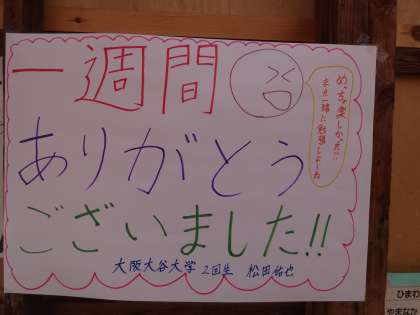 一週間
めっちゃ楽しかった!!
また一緒に勉強しよーね
ありがとう
ございました!!
大阪大谷大学 2回生 松田佑也
ひまわ
やまなた